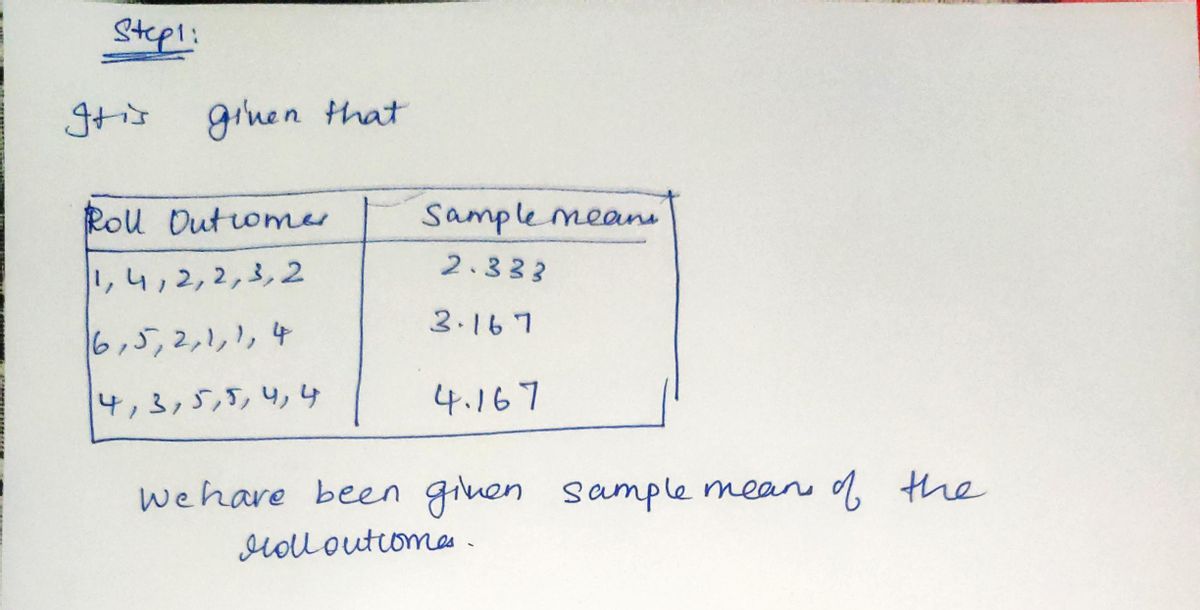 Step1:
It is given that
Roll Outcomes Sample means
1, 4, 2, 2, 3, 2 2.333
6, 5, 2, 1, 1, 4 3.167
4, 3, 5, 5, 4, 4 4.167
We have been given sample means of the
roll outcomes.